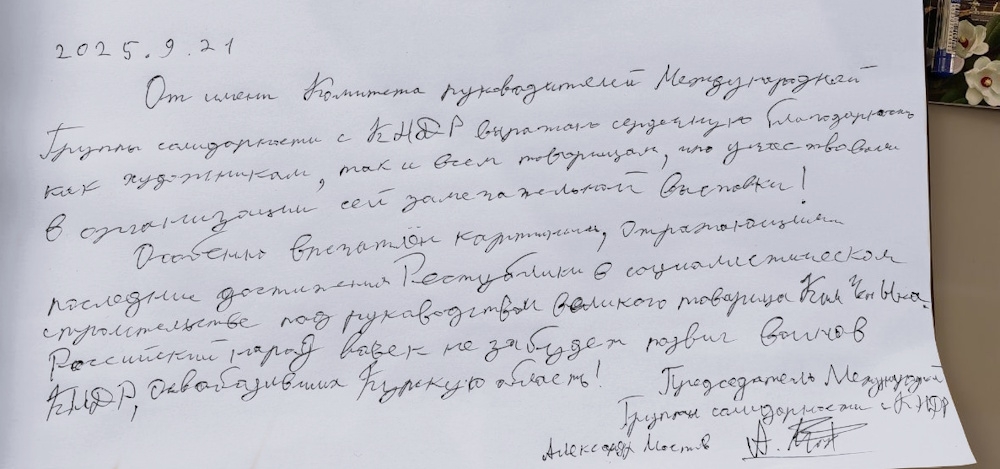 2025.9.21
От имени Комитета руководителей Международной
Группы солидарности с КНДР выражаю сердечную благодарность
как художникам, так и всем товарищам, что участвовали
в организации сей замечательной выставки!
Особенно впечатлён картинами, отражающими
последние достижения Республики в социалистическом
строительстве под руководством великого товарища Ким Чен Ына.
Российский народ ввек не забудет подвиг воинов
КНДР, освободивших Курскую область!
Председатель Международной
Группы солидарности с КНДР
Александр Мостов